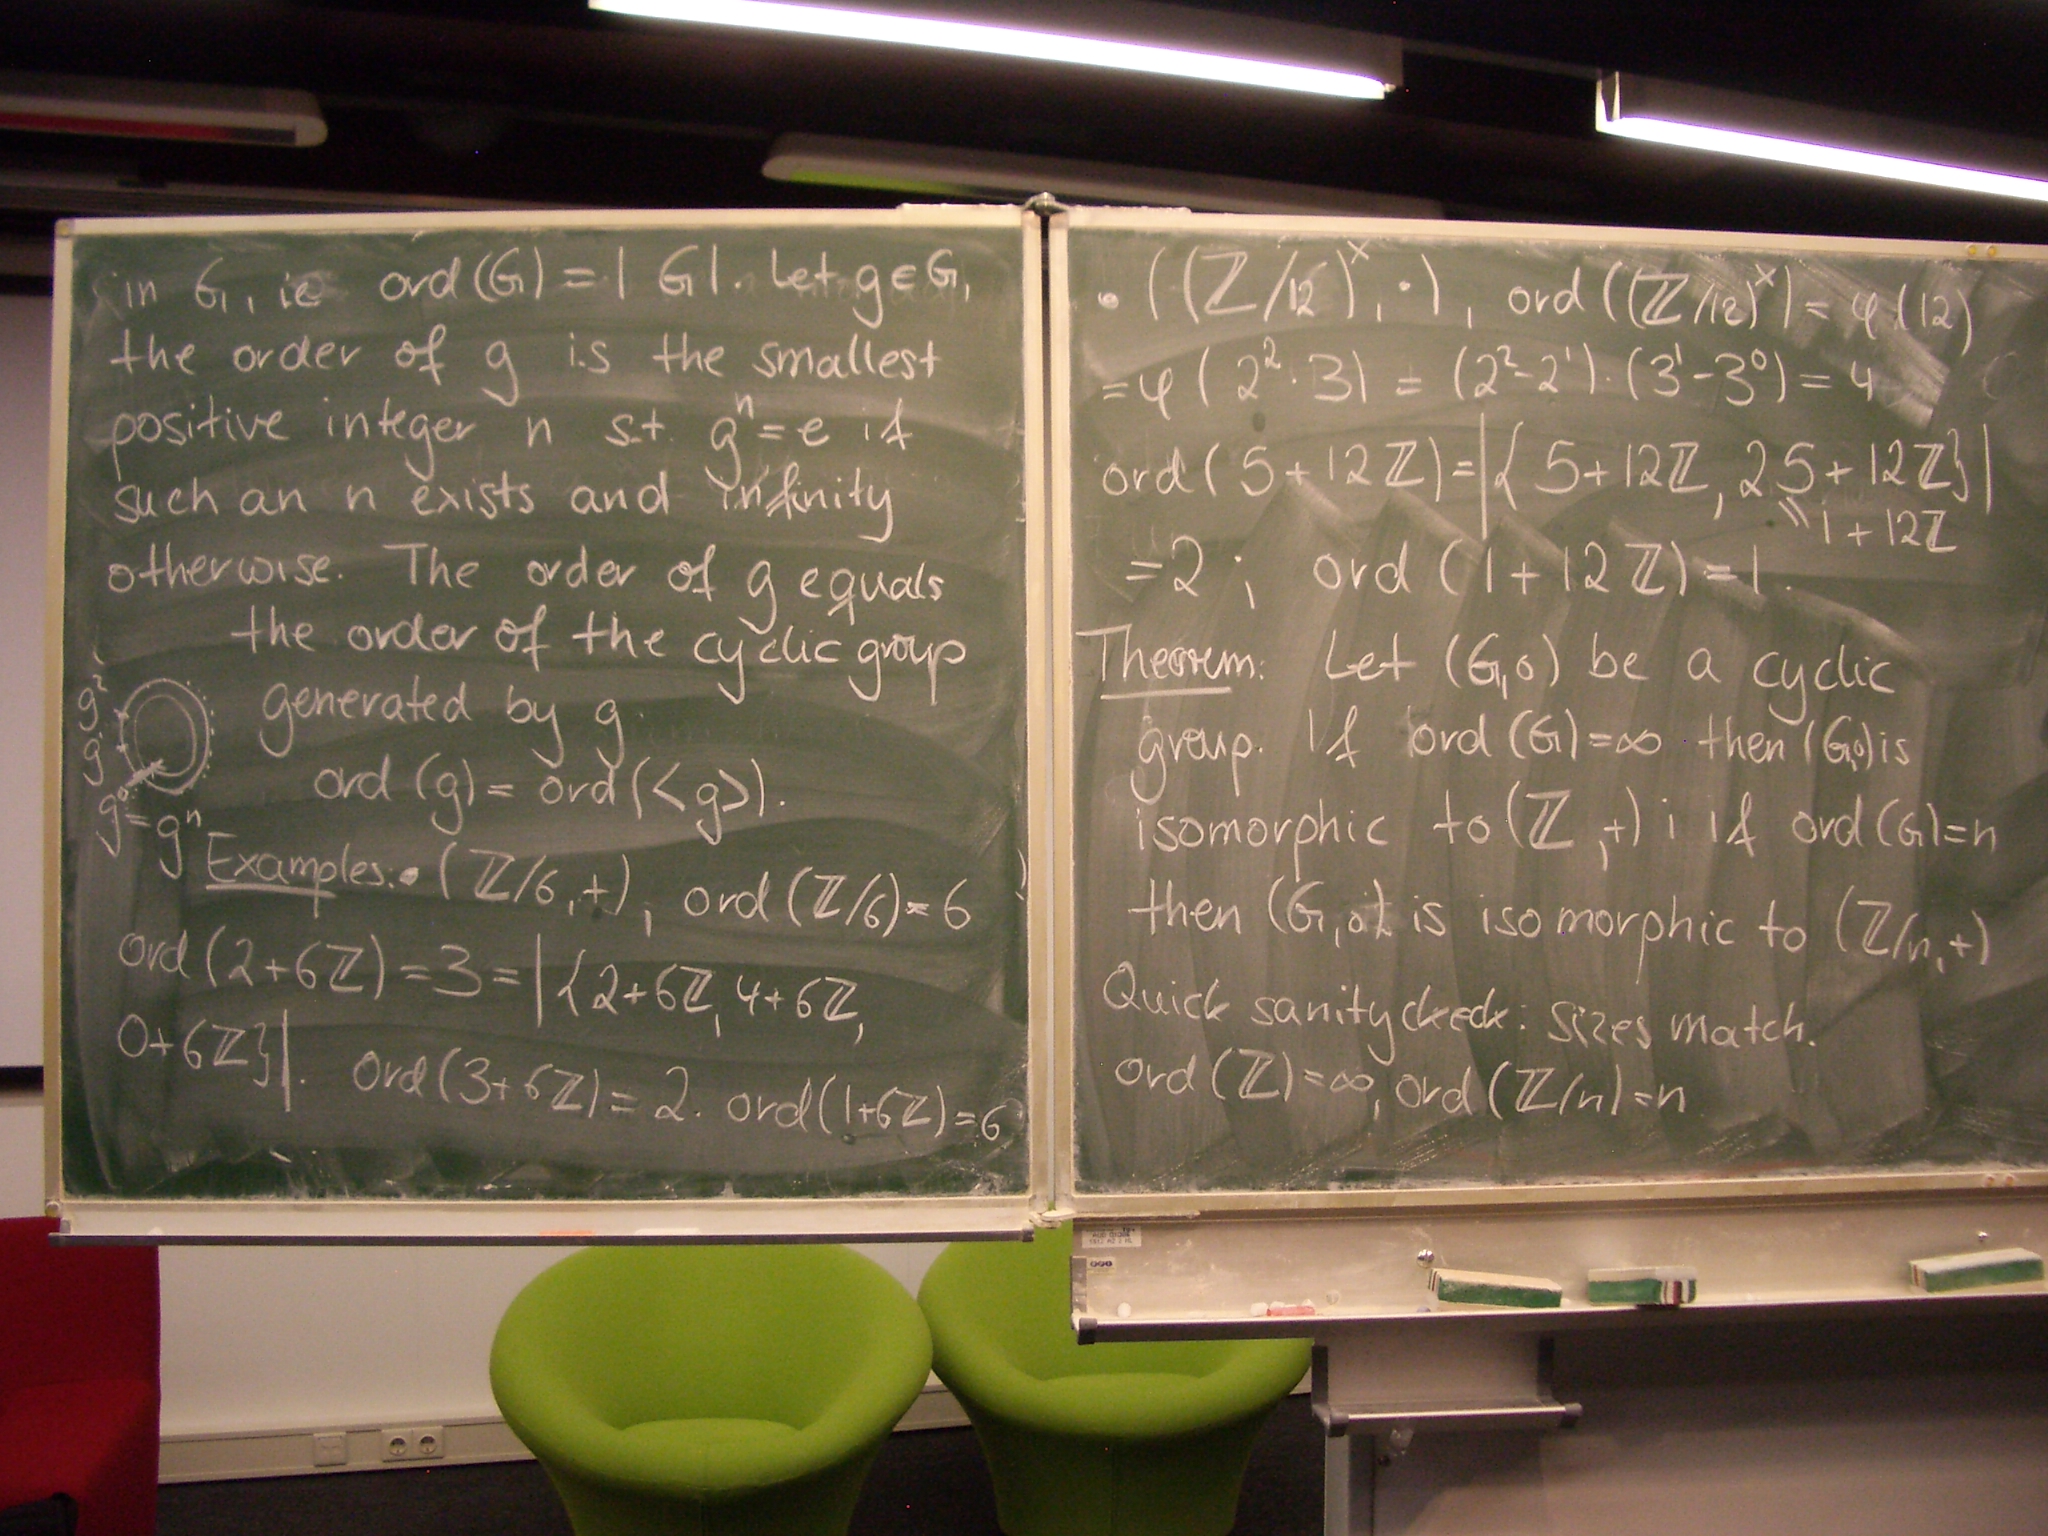 in G, ie ord(G) = |G|. Let g∈G,
the order of g is the smallest
positive integer n s.t. gⁿ=e if
such an n exists and infinity
otherwise. The order of g equals
the order of the cyclic group
generated by g.
ord(g) = ord(<g>).
g²
g¹
g⁰=gⁿ
Examples: • (ℤ/6,+), ord(ℤ/6) = 6
ord(2+6ℤ) = 3 = |{2+6ℤ, 4+6ℤ,
0+6ℤ}|. ord(3+6ℤ) = 2. ord(1+6ℤ) = 6
• ((ℤ/12)ˣ, ·), ord((ℤ/12)ˣ) = φ(12)
= φ(2²·3) = (2²-2¹)·(3¹-3⁰) = 4
ord(5+12ℤ) = |{5+12ℤ, 25+12ℤ}|
\\ 1+12ℤ
= 2; ord(1+12ℤ) = 1.
Theorem: Let (G,∘) be a cyclic
group. If ord(G)=∞ then (G,∘) is
isomorphic to (ℤ,+); if ord(G)=n
then (G,∘) is isomorphic to (ℤ/n,+)
Quick sanity check: sizes match.
ord(ℤ)=∞, ord(ℤ/n)=n